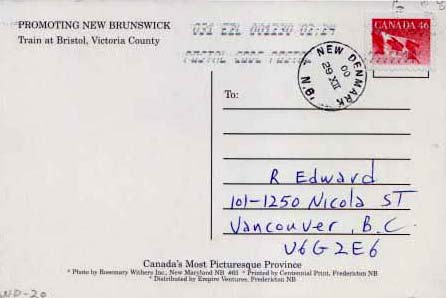 PROMOTING NEW BRUNSWICK
Train at Bristol, Victoria County
031 E2L 001230 02:24
POSTAL CODE POSTAL
CANADA 46
NEW DENMARK N.B.
29 XII
00
To:
R Edward
101-1250 Nicola ST
Vancouver, B.C.
V6G2E6
Canada's Most Picturesque Province
* Photo by Rosemary Withers Inc., New Maryland NB 461 * Printed by Centennial Print, Fredericton NB
* Distributed by Empire Ventures, Fredericton NB
WD-20